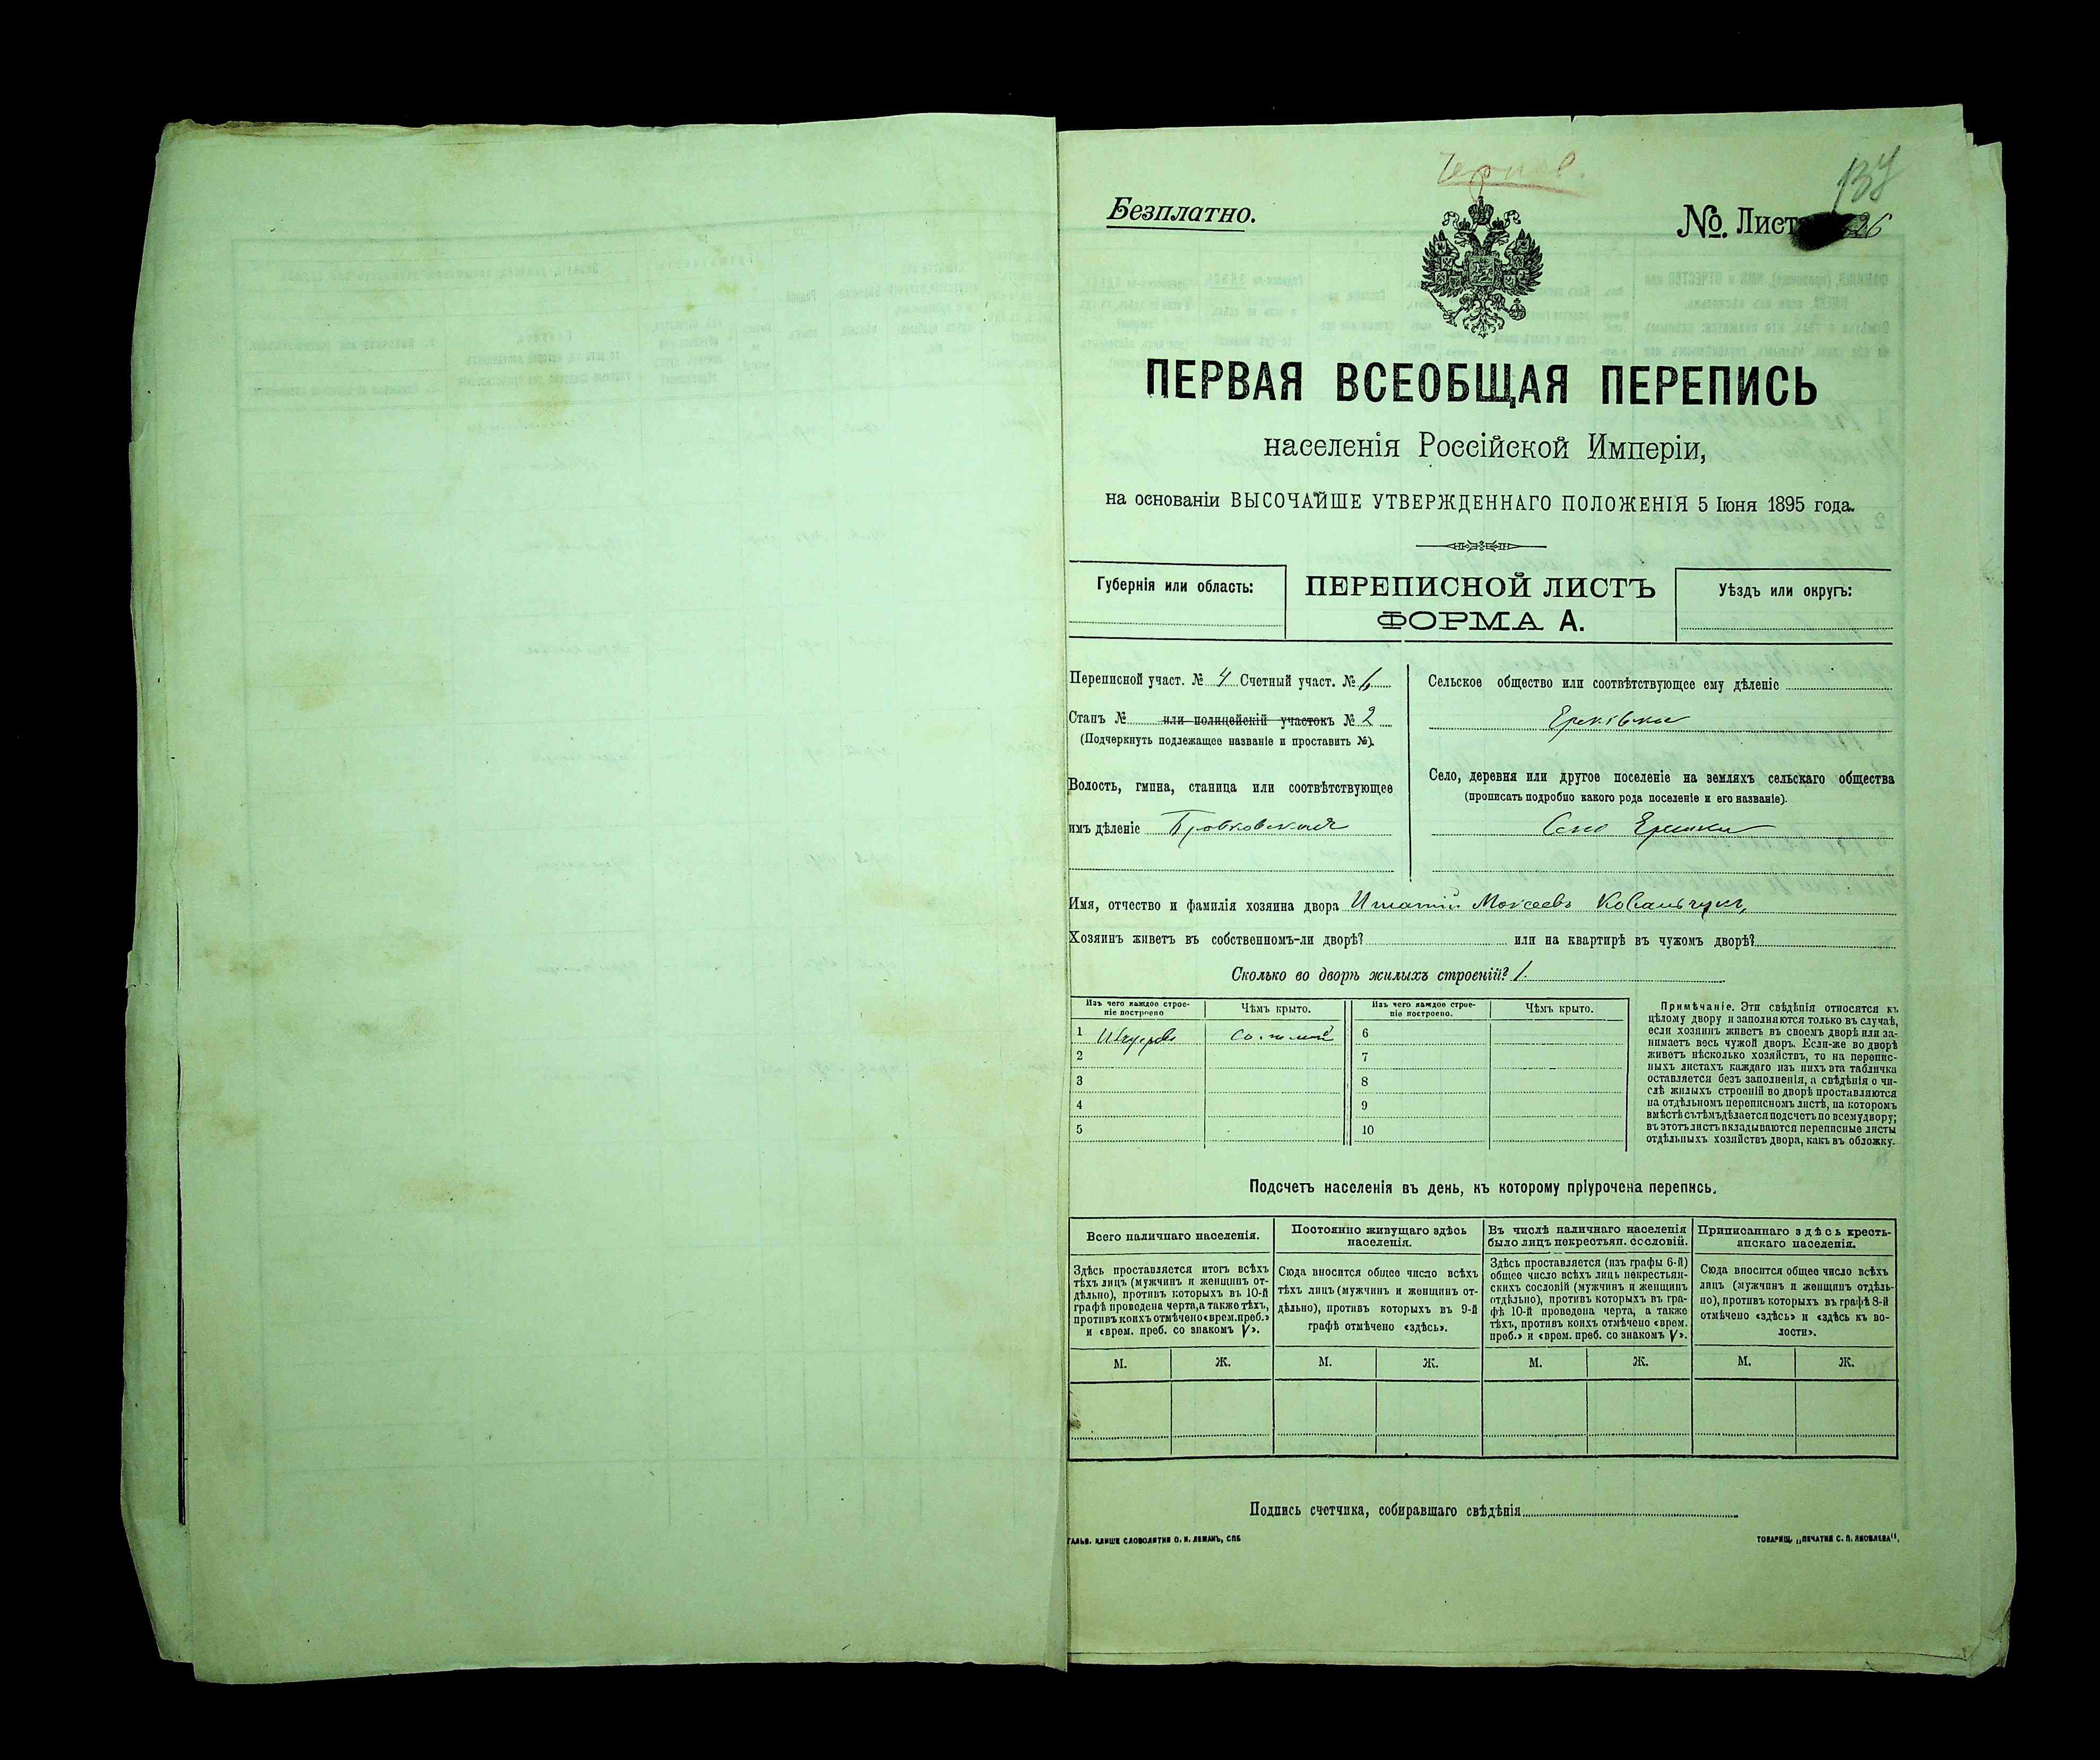 Чернов.
134
Безплатно.
№. Листа 26
ПЕРВАЯ ВСЕОБЩАЯ ПЕРЕПИСЬ
населенія Россійской Имперіи,
на основаніи ВЫСОЧАЙШЕ УТВЕРЖДЕННАГО ПОЛОЖЕНІЯ 5 Іюня 1895 года.
Губернія или область:
ПЕРЕПИСНОЙ ЛИСТЪ
ФОРМА А.
Уѣздъ или округъ:
Переписной участ. № 4 Счетный участ. № 6
Станъ № или полицейскій участокъ № 2
(Подчеркнуть подлежащее названіе и проставить №).
Волость, гмина, станица или соотвѣтствующее
имъ дѣленіе
Сельское общество или соотвѣтствующее ему дѣленіе
Село, деревня или другое поселеніе на земляхъ сельскаго общества
(прописать подробно какого рода поселеніе и его названіе).
Село Ерки
Имя, отчество и фамилія хозяина двора Игнатій Мокеевъ Ковальчукъ,
Хозяинъ живетъ въ собственномъ-ли дворѣ? или на квартирѣ въ чужомъ дворѣ?
Сколько во дворѣ жилыхъ строеній? 1.
Изъ чего каждое строе-
ніе построено
Чѣмъ крыто.
Изъ чего каждое строе-
ніе построено.
Чѣмъ крыто.
1 Соломой 6
2 7
3 8
4 9
5 10
Примѣчаніе. Эти свѣдѣнія относятся къ
цѣлому двору и заполняются только въ случаѣ,
если хозяинъ живетъ въ своемъ дворѣ или за-
нимаетъ весь чужой дворъ. Если-же во дворѣ
живетъ нѣсколько хозяйствъ, то на перепис-
ныхъ листахъ каждаго изъ нихъ эта табличка
оставляется безъ заполненія, а свѣдѣнія о чи-
слѣ жилыхъ строеній во дворѣ проставляются
на отдѣльномъ переписномъ листѣ, на которомъ
вмѣстѣ съ тѣмъ дѣлается подсчетъ по всему двору;
въ этотъ листъ вкладываются переписные листы
отдѣльныхъ хозяйствъ двора, какъ въ обложку.
Подсчетъ населенія въ день, къ которому пріурочена перепись.
Всего наличнаго населенія.
Здѣсь проставляется итогъ всѣхъ
тѣхъ лицъ (мужчинъ и женщинъ от-
дѣльно), противъ которыхъ въ 10-й
графѣ проведена черта, а также тѣхъ,
противъ коихъ отмѣчено «врем. преб.»
и «врем. преб. со знакомъ V».
Постоянно живущаго здѣсь
населенія.
Сюда вносится общее число всѣхъ
тѣхъ лицъ (мужчинъ и женщинъ от-
дѣльно), противъ которыхъ въ 9-й
графѣ отмѣчено «здѣсь».
Въ числѣ наличнаго населенія
было лицъ некрестьян. сословій.
Здѣсь проставляется (изъ графы 6-й)
общее число всѣхъ лицъ некрестьян-
скихъ сословій (мужчинъ и женщинъ
отдѣльно), противъ которыхъ въ гра-
фѣ 10-й проведена черта, а также
тѣхъ, противъ коихъ отмѣчено «врем.
преб.» и «врем. преб. со знакомъ V».
Приписаннаго здѣсь кресть-
янскаго населенія.
Сюда вносится общее число всѣхъ
лицъ (мужчинъ и женщинъ отдѣль-
но), противъ которыхъ въ графѣ 8-й
отмѣчено «здѣсь» и «здѣсь къ во-
лости».
М. Ж. М. Ж. М. Ж. М. Ж.
Подпись счетчика, собиравшаго свѣдѣнія
ГАЛЬВ. КЛИШЕ СЛОВОЛИТНИ О. И. ЛЕМАНЪ, СПБ
ТОВАРИЩ. „ПЕЧАТНИ С. П. ЯКОВЛЕВА“,